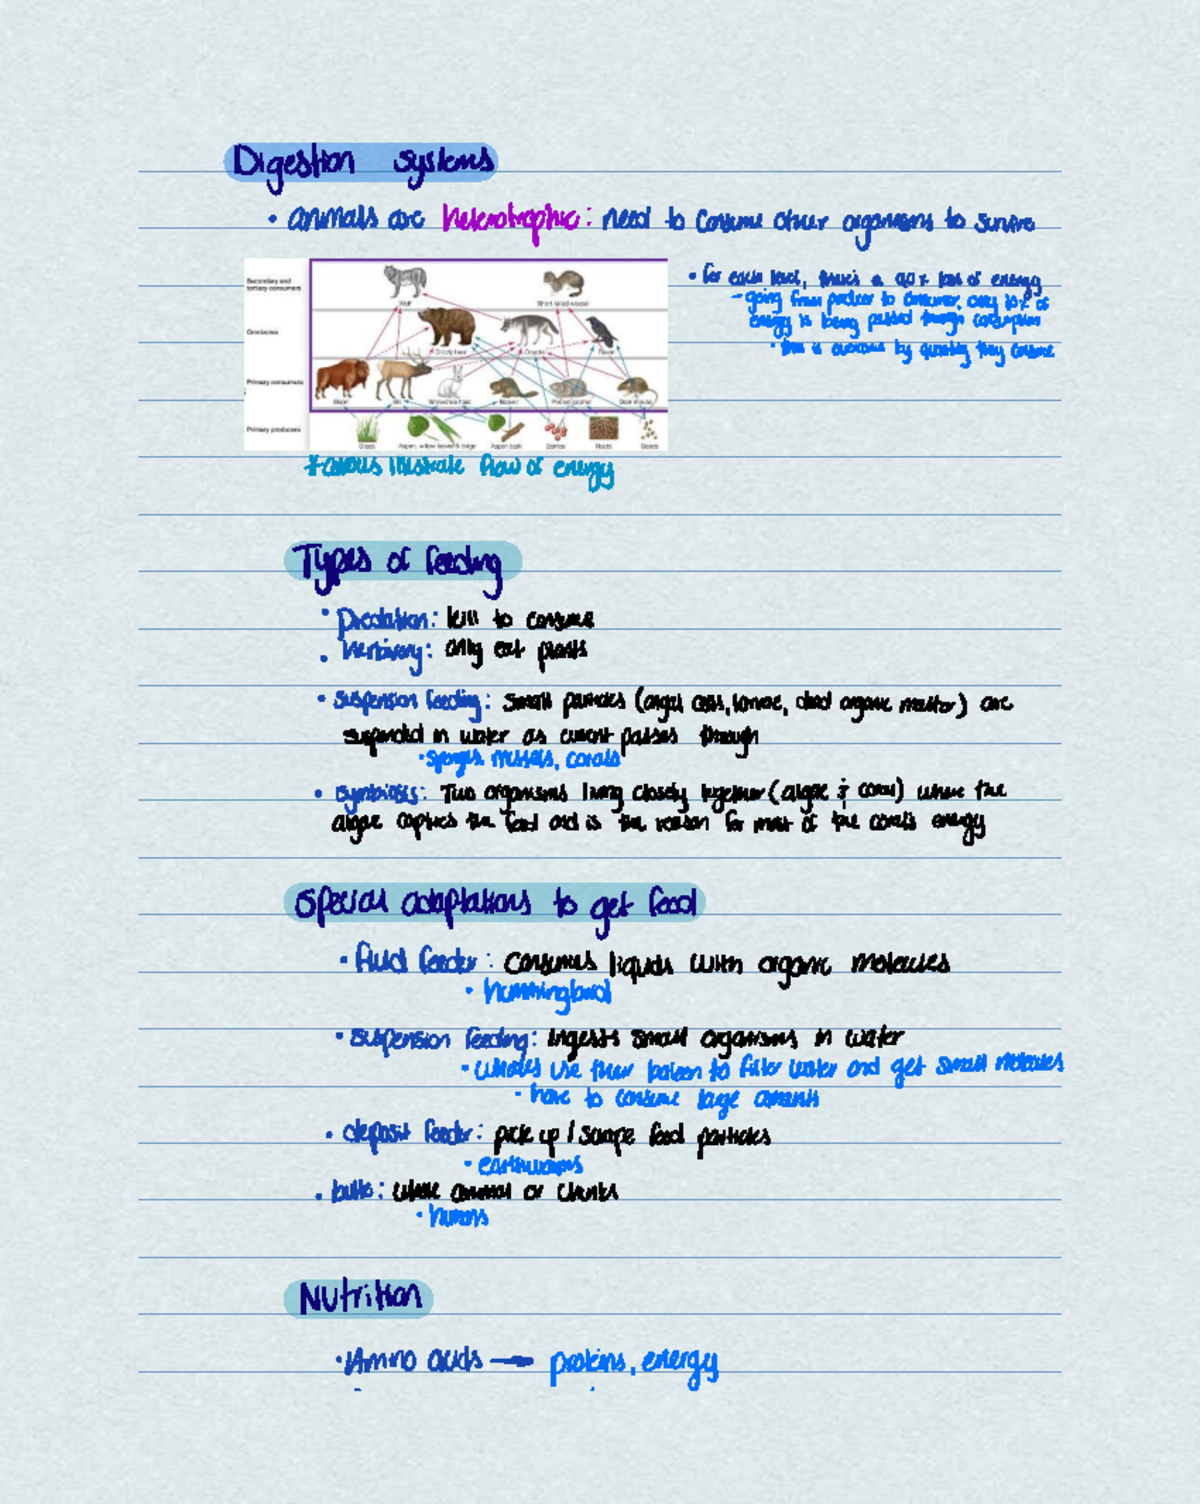 Digestion systems
• animals are heterotrophic: need to consume other organisms to survive
• for each level, there's a 90% loss of energy
- going from producer to consumer, only 10% of
energy is being passed through consumption
• this is overcome by quantity they consume
Secondary and
tertiary consumers
Wolf
Short-tailed weasel
Omnivores
Grizzly bear
Coyote
Raven
Primary consumers
Bison
Elk
Snowshoe hare
Beaver
Pocket gopher
Deer mouse
Primary producers
Grass
Aspen, willow leaves & twigs
Aspen bark
Berries
Roots
Seeds
*arrows illustrate flow of energy
Types of feeding
• Predation: kill to consume
• herbivory: only eat plants
• suspension feeding: small particles (algal cells, larvae, dead organic matter) are
suspended in water as current passes through
• sponges, mussels, corals
• symbiosis: Two organisms living closely together (algae & coral) where the
algae captures the food and is the reason for most of the coral's energy
Special adaptations to get food
• fluid feeder: consumes liquids with organic molecules
• hummingbird
• suspension feeding: ingests small organisms in water
• whales use their baleen to filter water and get small molecules
• have to consume large amounts
• deposit feeder: pick up / scrape food particles
• earthworms
• bulk: whole animal or chunks
• humans
Nutrition
• Amino acids → proteins, energy